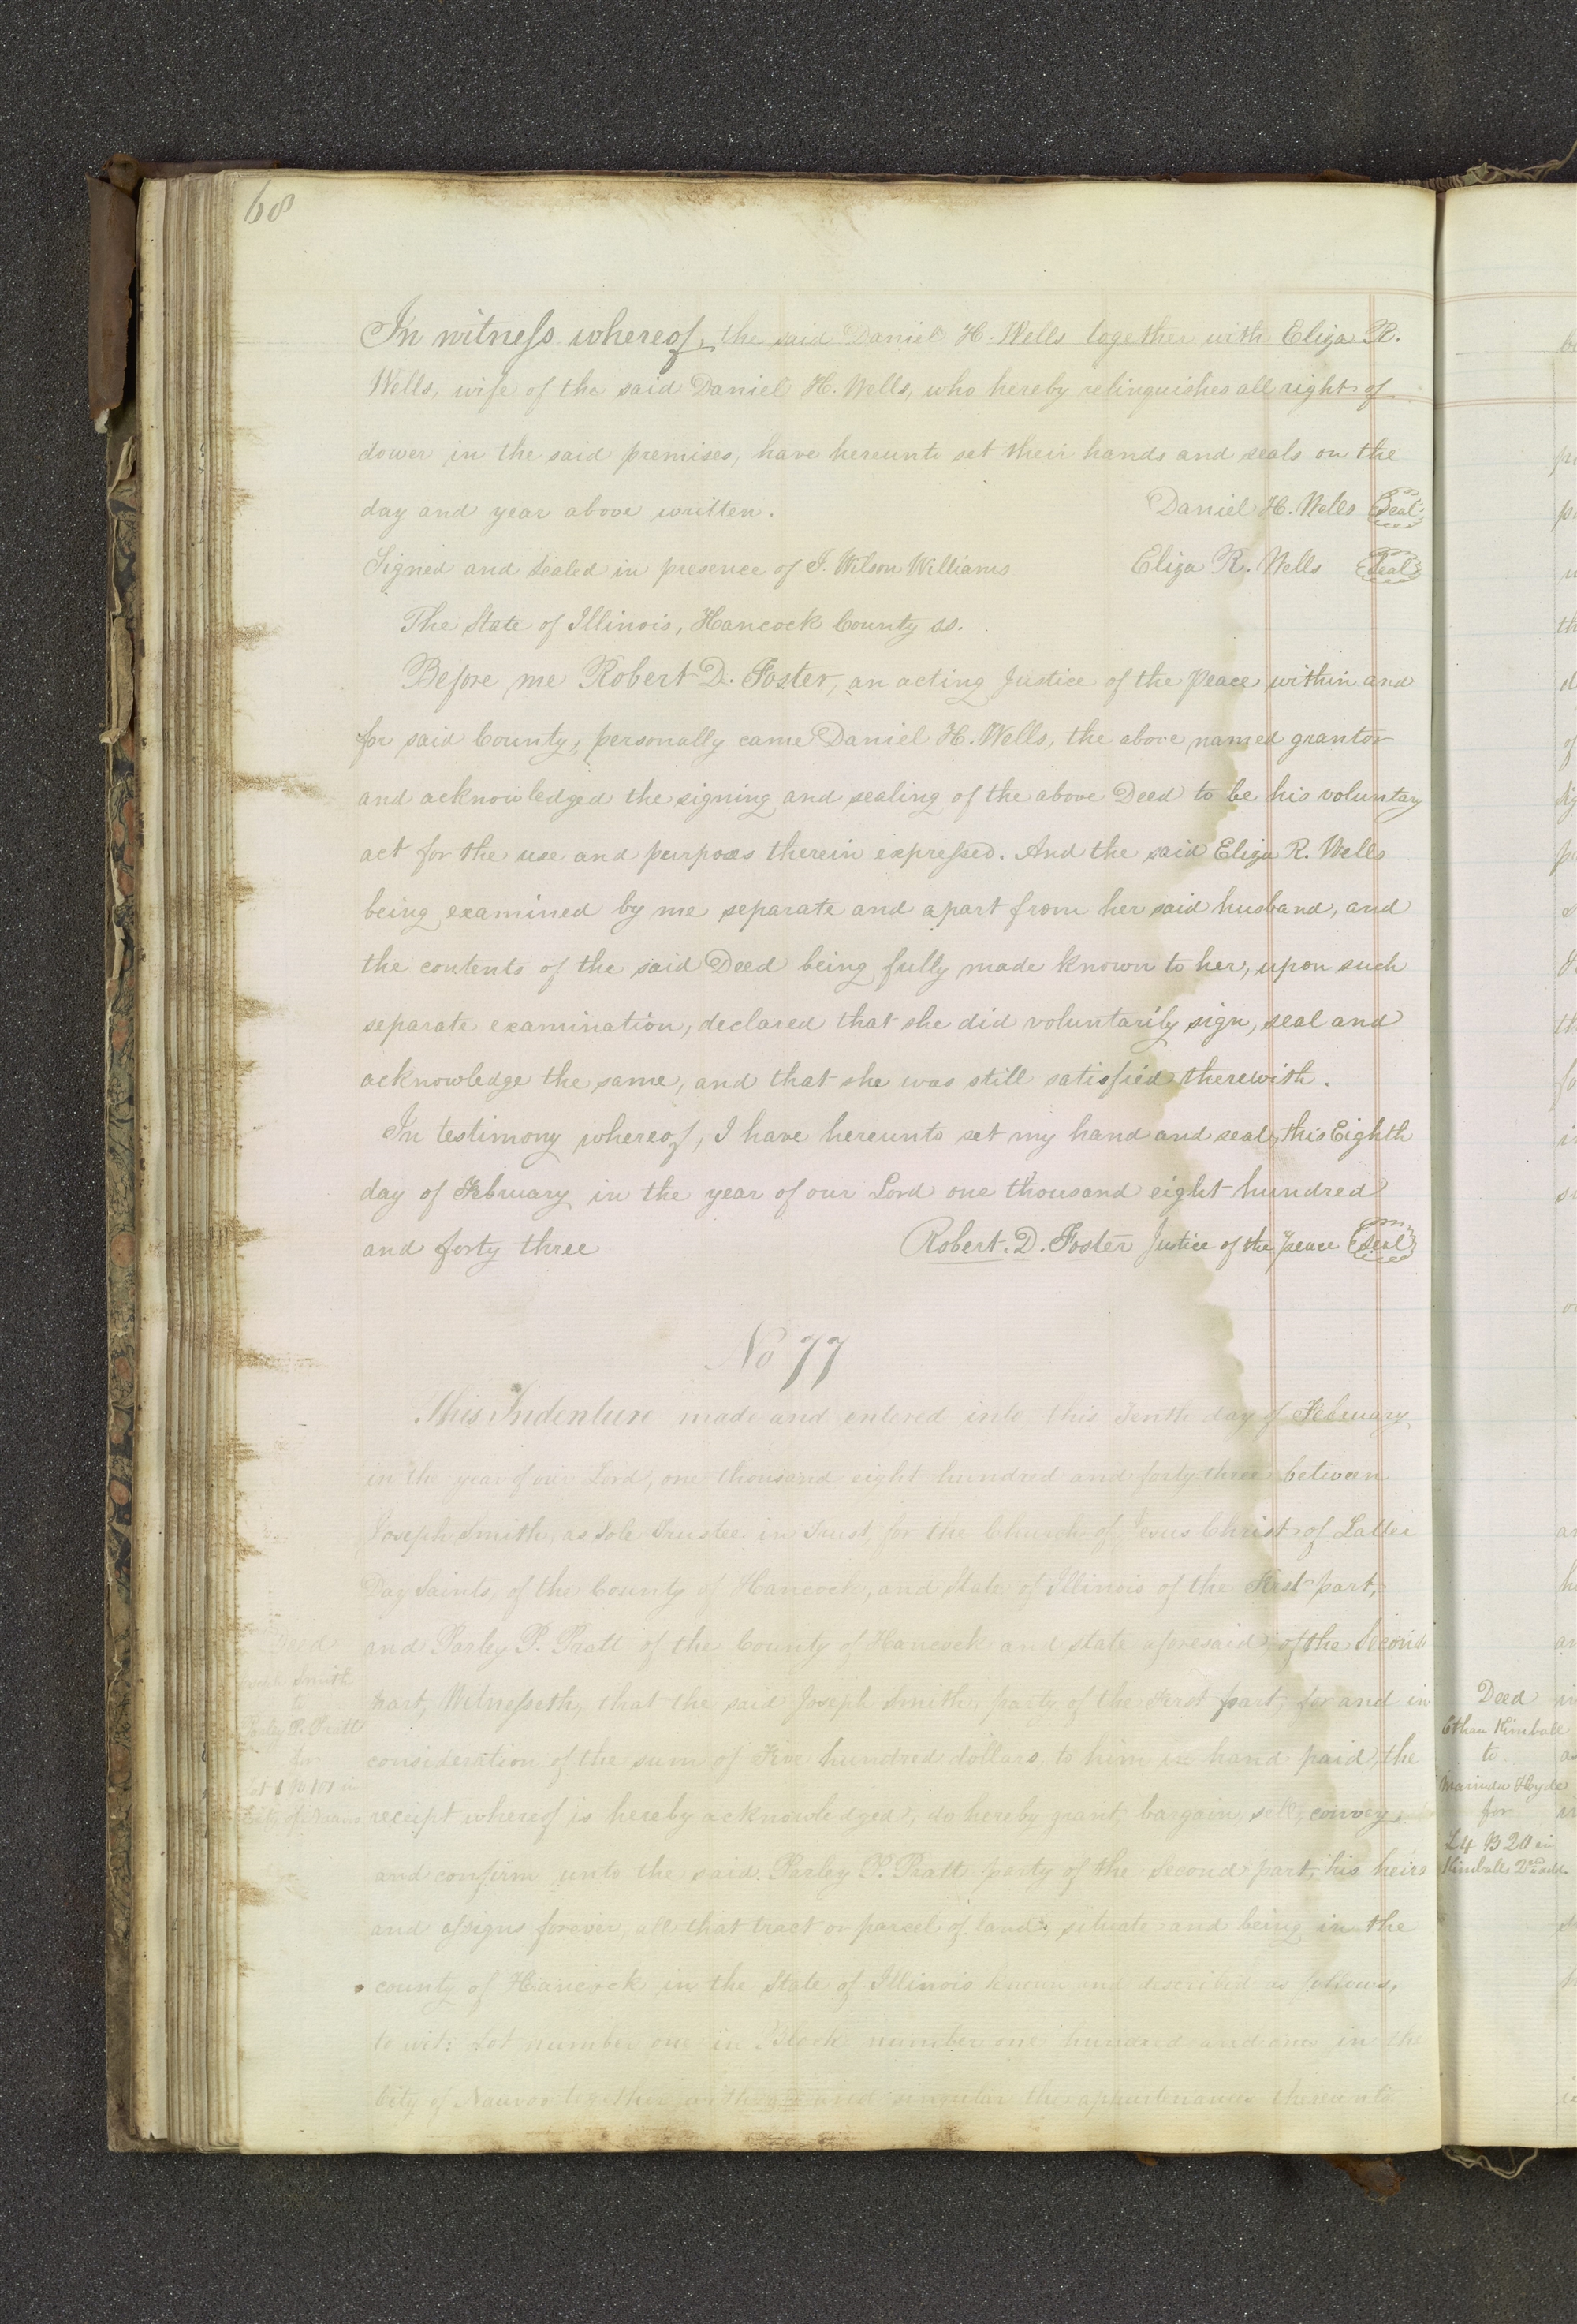 68
In witness whereof, the said Daniel H. Wells together with Eliza R.
Wells, wife of the said Daniel H. Wells, who hereby relinquishes all right of
dower in the said premises, have hereunto set their hands and seals on the
day and year above written. Daniel H. Wells Seal
Signed and Sealed in presence of J. Wilson Williams Eliza R. Wells Seal
The State of Illinois, Hancock County ss.
Before me Robert D. Foster, an acting Justice of the Peace within and
for said County, personally came Daniel H. Wells, the above named grantor
and acknowledged the signing and sealing of the above Deed to be his voluntary
act for the use and purposes therein expressed. And the said Eliza R. Wells
being examined by me separate and apart from her said husband, and
the contents of the said Deed being fully made known to her, upon such
separate examination, declared that she did voluntarily sign, seal and
acknowledge the same, and that she was still satisfied therewith.
In testimony whereof, I have hereunto set my hand and seal, this Eighth
day of February in the year of our Lord one thousand eight hundred
and forty three Robert. D. Foster Justice of the Peace Seal
No 77
This Indenture made and entered into this Tenth day of February
in the year of our Lord, one thousand eight hundred and forty three between
Joseph Smith, as Sole Trustee in Trust, for the Church of Jesus Christ of Latter
Day Saints, of the County of Hancock, and State of Illinois of the First part,
and Parley P. Pratt of the County of Hancock and State aforesaid of the Second
part, Witnesseth, that the said Joseph Smith, party of the First part, for and in
consideration of the sum of Five hundred dollars to him in hand paid, the
receipt whereof is hereby acknowledged, do hereby grant, bargain, sell, convey,
and confirm unto the said Parley P. Pratt party of the Second part, his heirs
and assigns forever, all that tract or parcel of land, situate and being in the
county of Hancock in the State of Illinois known and described as follows,
to wit: Lot number one in Block number one hundred and one in the
City of Nauvoo together with all and singular the appurtenances thereunto
Deed
Joseph Smith
to
Parley P. Pratt
for
Lot 1 B 101 in
City of Nauvoo
Deed
Ethan Kimball
to
Marinda Hyde
for
L4 B 20 in
Kimballs 2nd add.